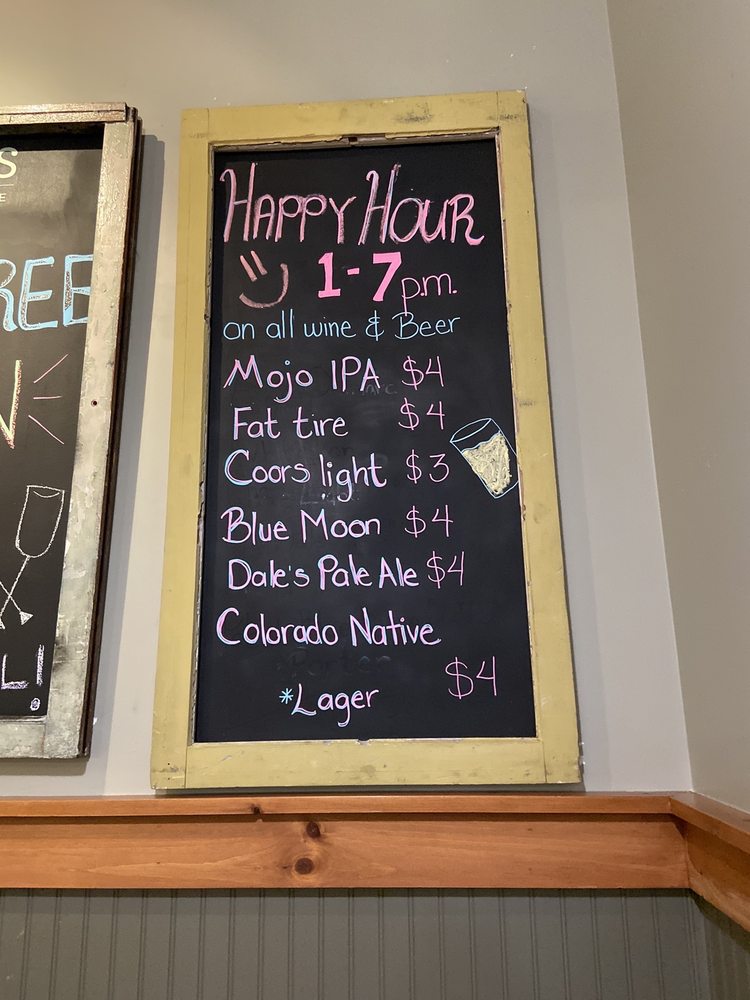 S
E
REE
N
LI
HAPPY HOUR
1-7 p.m.
on all wine & Beer
Mojo IPA $4
Fat tire $4
Coors light $3
Blue Moon $4
Dale's Pale Ale $4
Colorado Native
*Lager $4